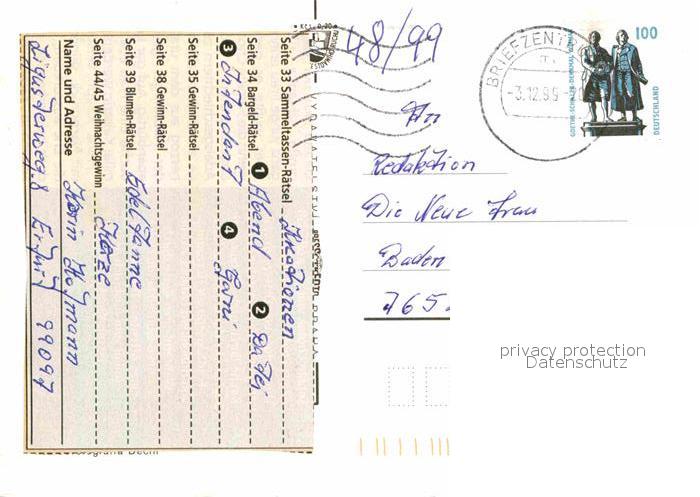 48/99
100
BRIEFZENTR
-3.12.99
GOETHE-SCHILLER-DENKMAL WEIMAR
DEUTSCHLAND
An
Redaktion
Die Neue Frau
Baden
765
privacy protection
Datenschutz
Seite 33 Sammeltassen-Rätsel
Seite 34 Bargeld-Rätsel 1 Abend 2 Datei
3 Intendant 4 Garni
Seite 35 Gewinn-Rätsel
Seite 38 Gewinn-Rätsel
Seite 39 Blumen-Rätsel Edeltanne
Seite 44/45 Weihnachtsgewinn Kerze
Name und Adresse Karin Hofmann
Ligusterweg 8 Erfurt 99097